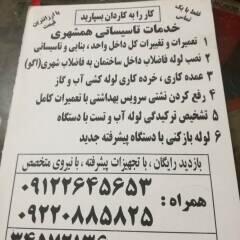 فقط با یک تماس
با نازلترین قیمت
کار را به کاردان بسپارید
خدمات تاسیساتی همشهری
۱ تعمیرات و تغییرات کل داخل واحد، بنایی و تاسیساتی
۲ نصب لوله فاضلاب داخل ساختمان به فاضلاب شهری (اگو)
۳ عمده کاری ، خرده کاری لوله کشی آب و گاز
۴ رفع کردن نشتی سرویس بهداشتی با تعمیرات کامل
۵ تشخیص ترکیدگی لوله آب و تست با دستگاه
۶ لوله بازکنی با دستگاه پیشرفته جدید
بازدید رایگان ، با تجهیزات پیشرفته ، با نیروی متخصص
همراه : ۰۹۱۲۲۶۴۵۶۵۳
۰۹۲۲۰۸۸۵۸۲۵